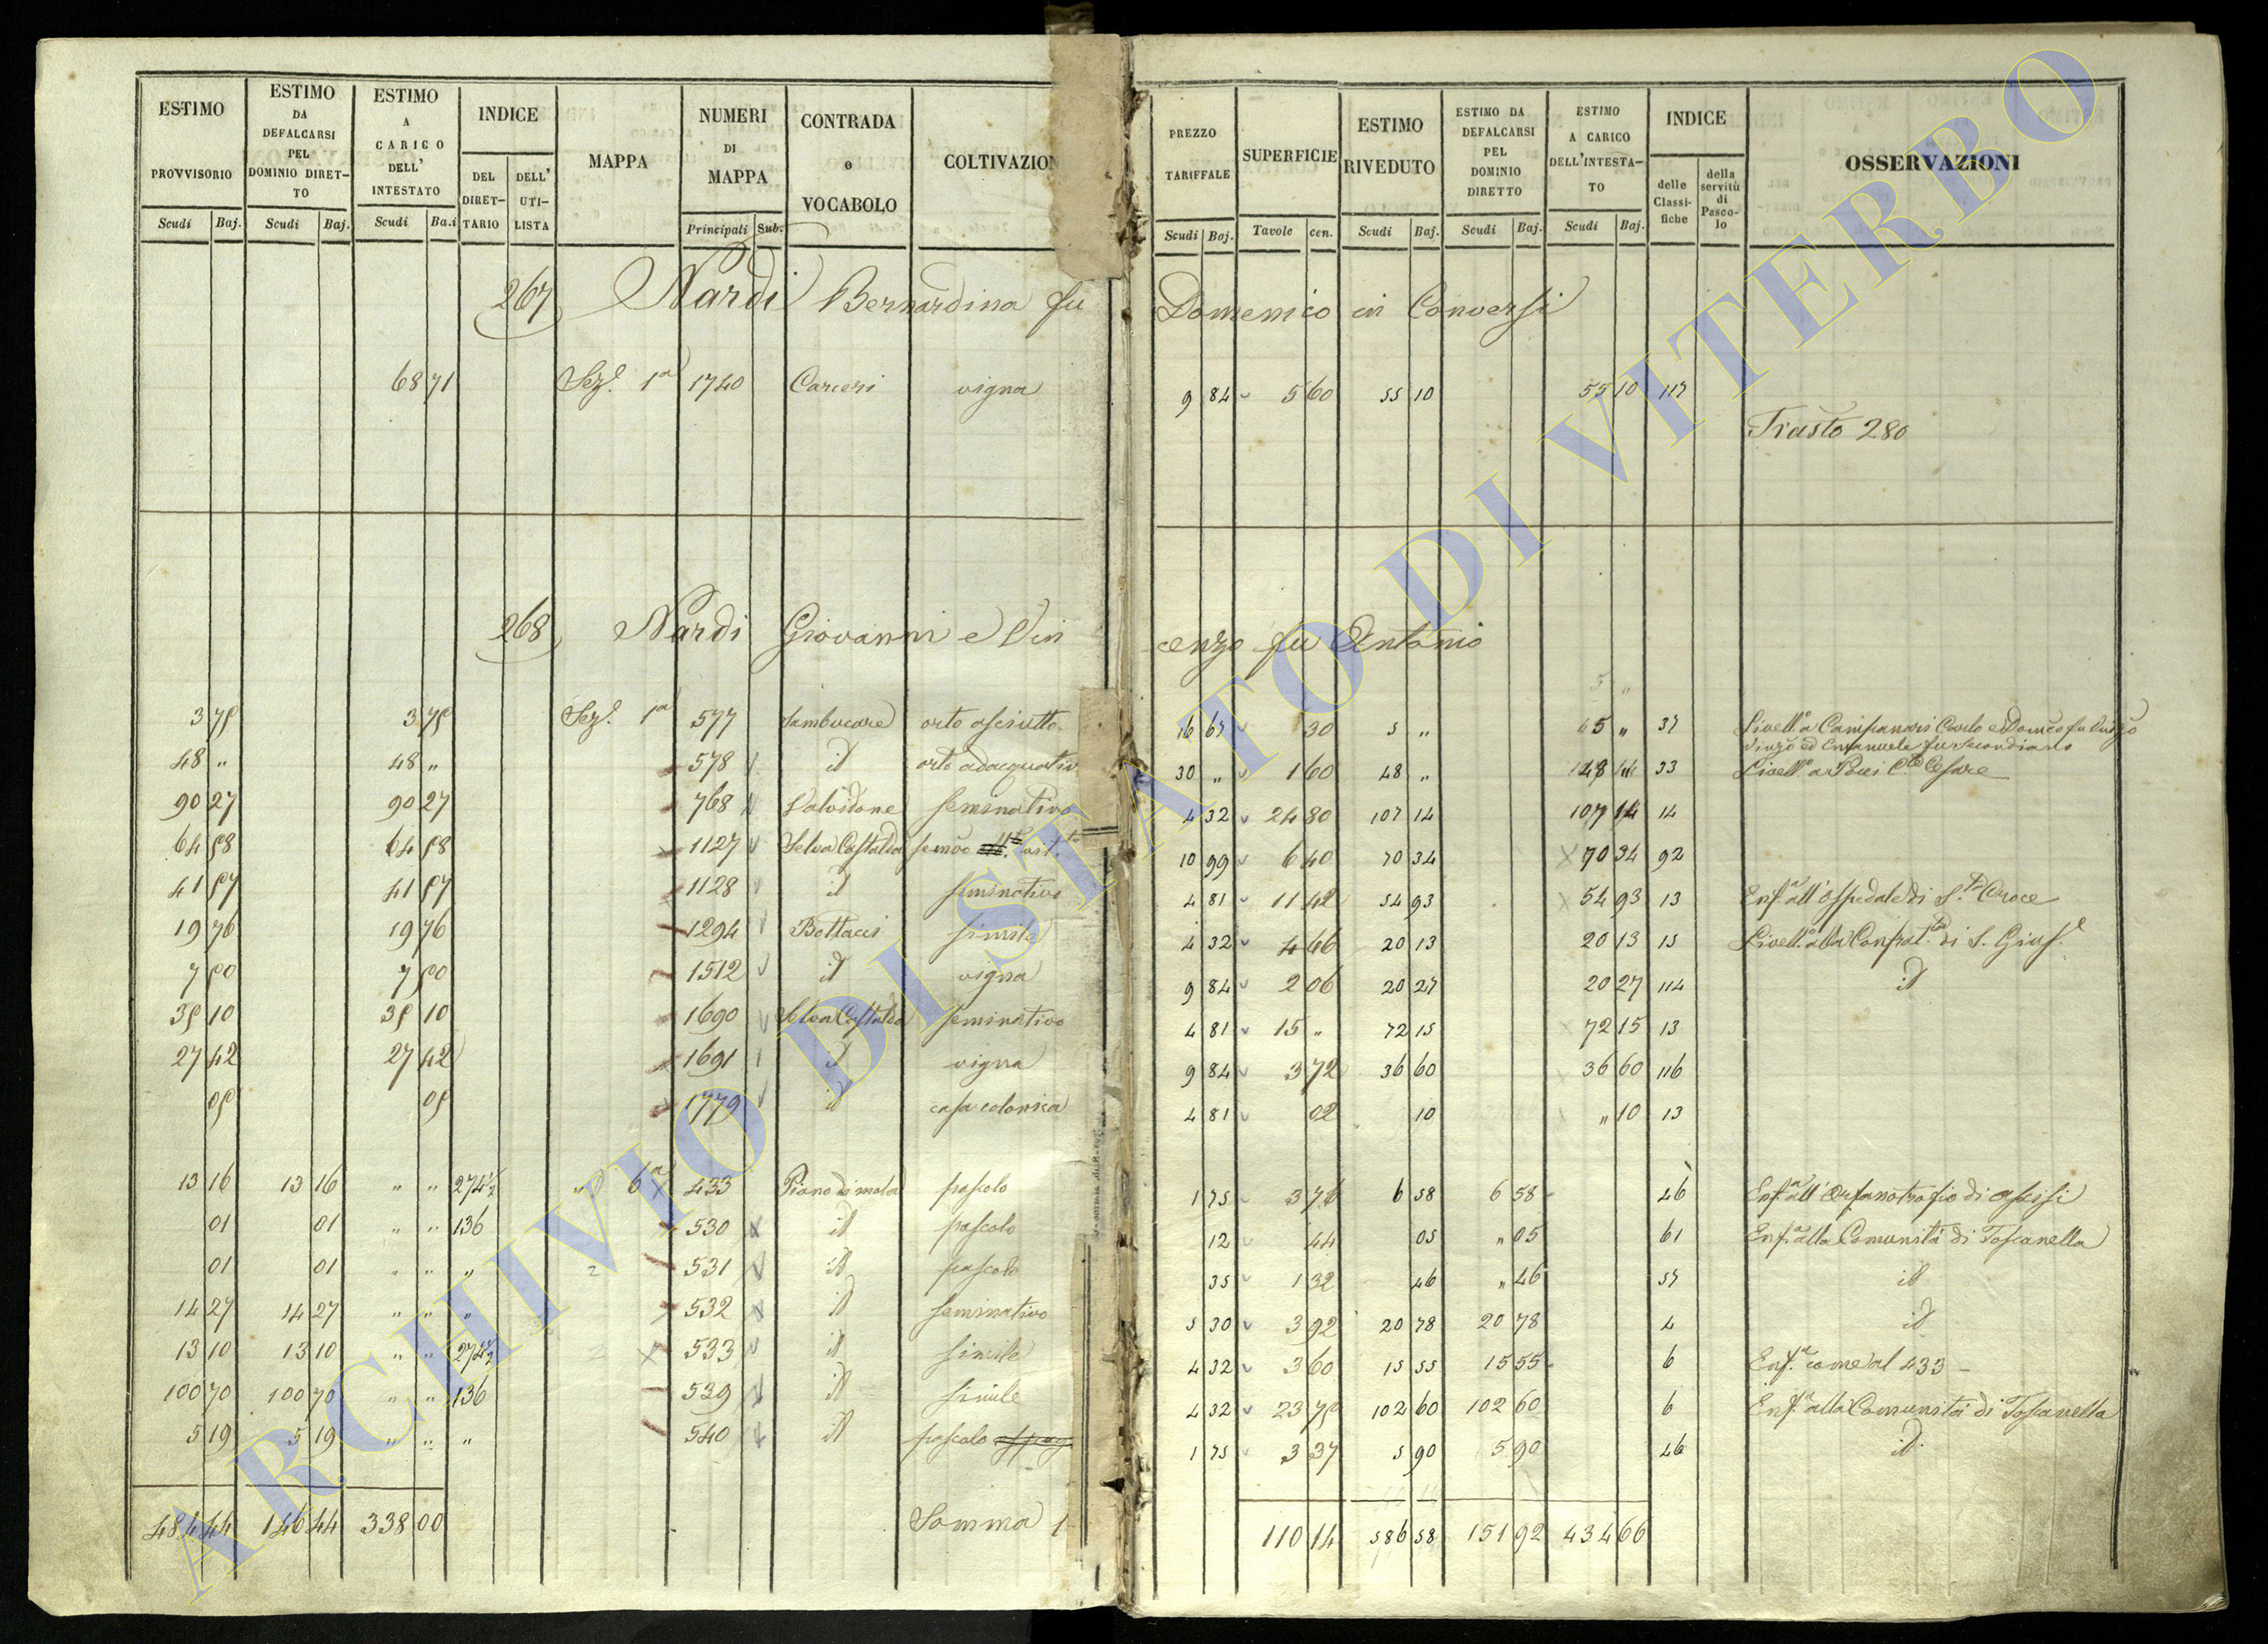 ESTIMO PROVVISORIO | ESTIMO DA DEFALCARSI PEL DOMINIO DIRET-TO | ESTIMO A CARICO DELL' INTESTATO | INDICE | MAPPA | NUMERI DI MAPPA | CONTRADA o VOCABOLO | COLTIVAZION | PREZZO TARIFFALE | SUPERFICIE | ESTIMO RIVEDUTO | ESTIMO DA DEFALCARSI PEL DOMINIO DIRETTO | ESTIMO A CARICO DELL'INTESTA-TO | INDICE | OSSERVAZIONI
DEL DIRET-TARIO | DELL' UTI-LISTA | delle Classi-fiche | della servitù di Pasco-lo
Scudi | Baj. | Scudi | Baj. | Scudi | Ba.i | Principali | Sub. | Scudi | Baj. | Tavole | cen. | Scudi | Baj. | Scudi | Baj. | Scudi | Baj.
267 Nardi Bernardina fu Domenico in Conversi
68 71 | Sez.e 1a | 1740 | Carceri | vigna | 9 84 | 5 60 | 55 10 | 55 10 | 117
Trasto 280
268 Nardi Giovanni e Vin cenzo fu Antonio
5 "
3 75 | 3 75 | Sez.e 1a | 577 | Sambucare | orto asciutto | 16 67 | 30 | 5 " | 5 " | 37 | Livell.o a Campanari Carlo e
ed Emanuele fu Secondiano
48 " | 48 " | 578 | id | orto adacquativ | 30 " | 1 60 | 48 " | 48 | 33 | Livell.o a Pocci C.te Cesare
90 27 | 90 27 | 768 | Valvidone | seminativo | 4 32 | 24 80 | 107 14 | 107 14 | 14
64 58 | 64 58 | 1127 | Selva Castalda | semivo vit.to | 10 99 | 6 40 | 70 34 | 70 34 | 92
41 57 | 41 57 | 1128 | id | seminativo | 4 81 | 11 42 | 54 93 | 54 93 | 13 | Enf.a all'Ospedale di S.ta Croce
19 76 | 19 76 | 1294 | Bottacci | simile | 4 32 | 4 66 | 20 13 | 20 13 | 15 | Livell.o alla Confrat.ta di S. Gius.e
7 50 | 7 50 | 1512 | id | vigna | 9 84 | 2 06 | 20 27 | 20 27 | 114 | id
35 10 | 35 10 | 1690 | Selva Castalda | seminativo | 4 81 | 15 " | 72 15 | 72 15 | 13
27 42 | 27 42 | 1691 | id | vigna | 9 84 | 3 72 | 36 60 | 36 60 | 116
05 | 05 | 1779 | id | casa colonica | 4 81 | 02 | 10 | " 10 | 13
13 16 | 13 16 | " " | 274 1/2 | " 6a | 433 | Piano di mola | pascolo | 1 75 | 3 76 | 6 58 | 6 58 | 46 | Enf.a all'Orfanotrofio di Assisi
01 | 01 | " " | 136 | 530 | id | pascolo | 12 | 44 | 05 | " 05 | 61 | Enf.a alla Comunità di Toscanella
01 | 01 | " " | " | 531 | id | pascolo | 35 | 1 32 | 46 | " 46 | 57 | id
14 27 | 14 27 | " " | " | 532 | id | seminativo | 5 30 | 3 92 | 20 78 | 20 78 | 4 | id
13 10 | 13 10 | " " | 274 1/2 | 533 | id | simile | 4 32 | 3 60 | 15 55 | 15 55 | 6 | Enf.a come al 433
100 70 | 100 70 | " " | 136 | 539 | id | simile | 4 32 | 23 75 | 102 60 | 102 60 | 6 | Enf.a alla Comunità di Toscanella
5 19 | 5 19 | " " | " | 540 | id | pascolo | 1 75 | 3 37 | 5 90 | 5 90 | 46 | id.
484 44 | 146 44 | 338 00 | Somma | 110 14 | 586 58 | 151 92 | 434 66
ARCHIVIO DI STATO DI VITERBO